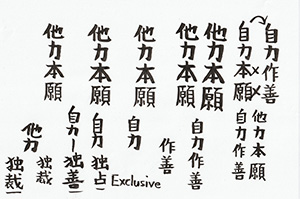 自力作善
自力本願
××
他力本願
他力本願
他力本願
他力本願
他力本願
他力本願
自力作善
自力作善
作善
自力
自力独占
Exclusive
自力ー独善
独裁
他力
独裁